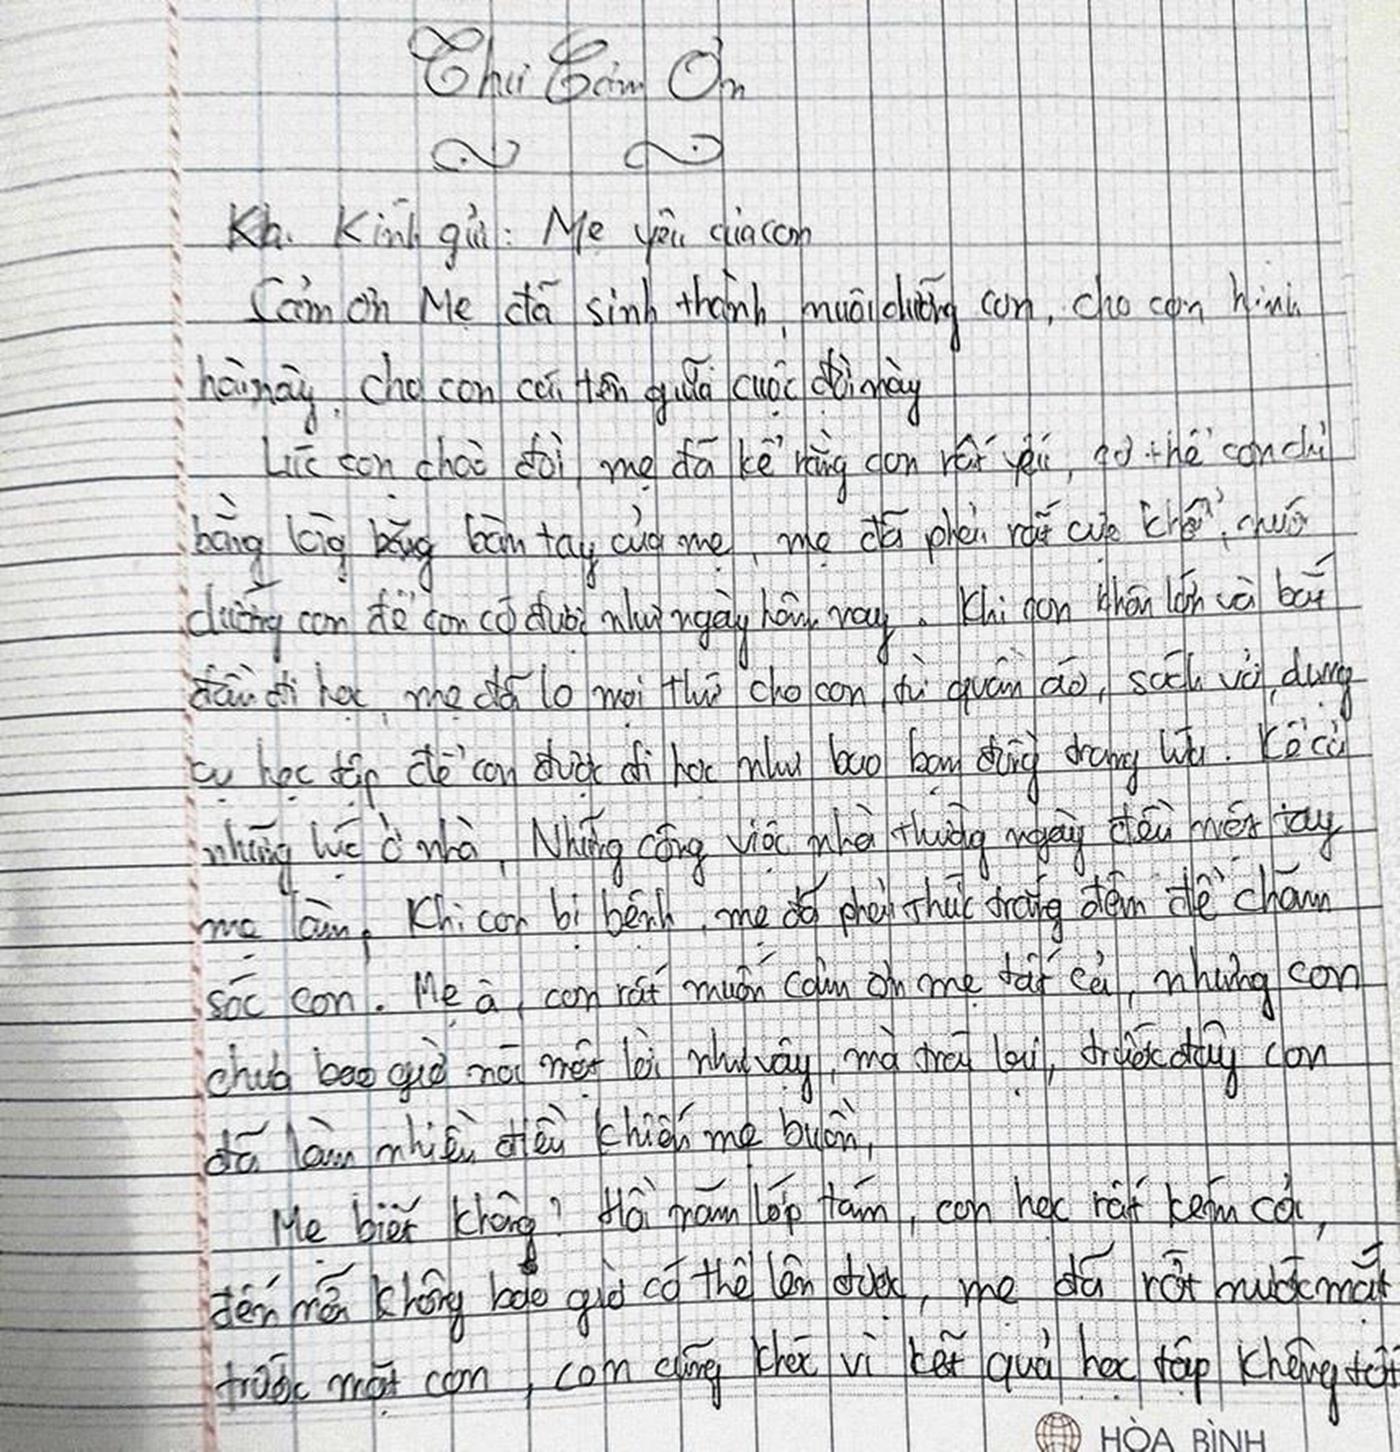 Thư Cảm Ơn
Kh. Kính gửi: Mẹ yêu của con
Cảm ơn Mẹ đã sinh thành, nuôi dưỡng con, cho con hình
hài này, cho con cái tên giữa cuộc đời này
Lúc con chào đời, mẹ đã kể rằng con rất yếu, cơ thể con chỉ
bằng lòng bằng bàn tay của mẹ, mẹ đã phải rất cực khổ, nuôi
dưỡng con để con có được như ngày hôm nay. Khi con khôn lớn và bắt
đầu đi học, mẹ đã lo mọi thứ cho con, từ quần áo, sách vở, dụng
cụ học tập để con được đi học như bao bạn đồng trang lứa. Kể cả
những lúc ở nhà, Những công việc nhà thường ngày đều một tay
mẹ làm, Khi con bị bệnh, mẹ đã phải thức trắng đêm để chăm
sóc con. Mẹ à, con rất muốn cảm ơn mẹ tất cả, nhưng con
chưa bao giờ nói một lời như vậy, mà trái lại, trước đây con
đã làm nhiều điều khiến mẹ buồn,
Mẹ biết không? Hồi năm lớp tám, con học rất kém cỏi,
đến mỗi không bao giờ có thể lên được, mẹ đã rớt nước mắt
trước mặt con, con cũng khóc vì kết quả học tập không tốt
HÒA BÌNH